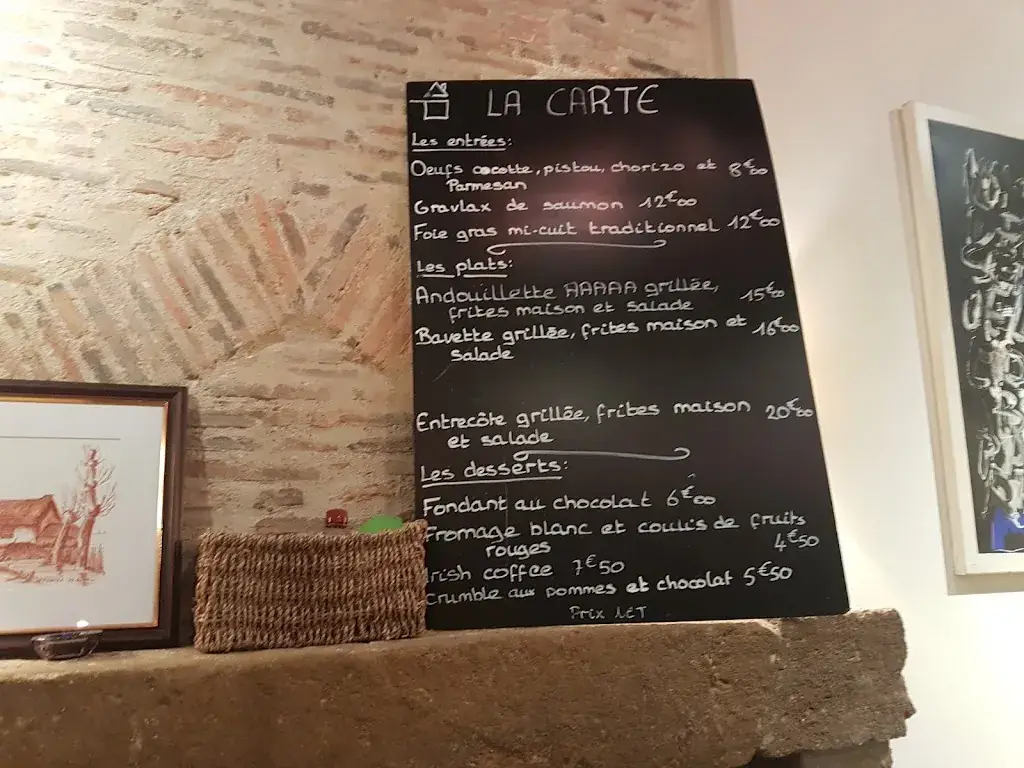 LA CARTE
Les entrées:
Oeufs cocotte, pistou, chorizo et 8€00
Parmesan
Gravlax de saumon 12€00
Foie gras mi-cuit traditionnel 12€00
Les plats:
Andouillette AAAAA grillée, 15€00
frites maison et salade
Bavette grillée, frites maison et 16€00
salade
Entrecôte grillée, frites maison 20€00
et salade
Les desserts:
Fondant au chocolat 6€00
Fromage blanc et coulis de fruits
rouges 4€50
Irish coffee 7€50
Crumble aux pommes et chocolat 5€50
Prix NET